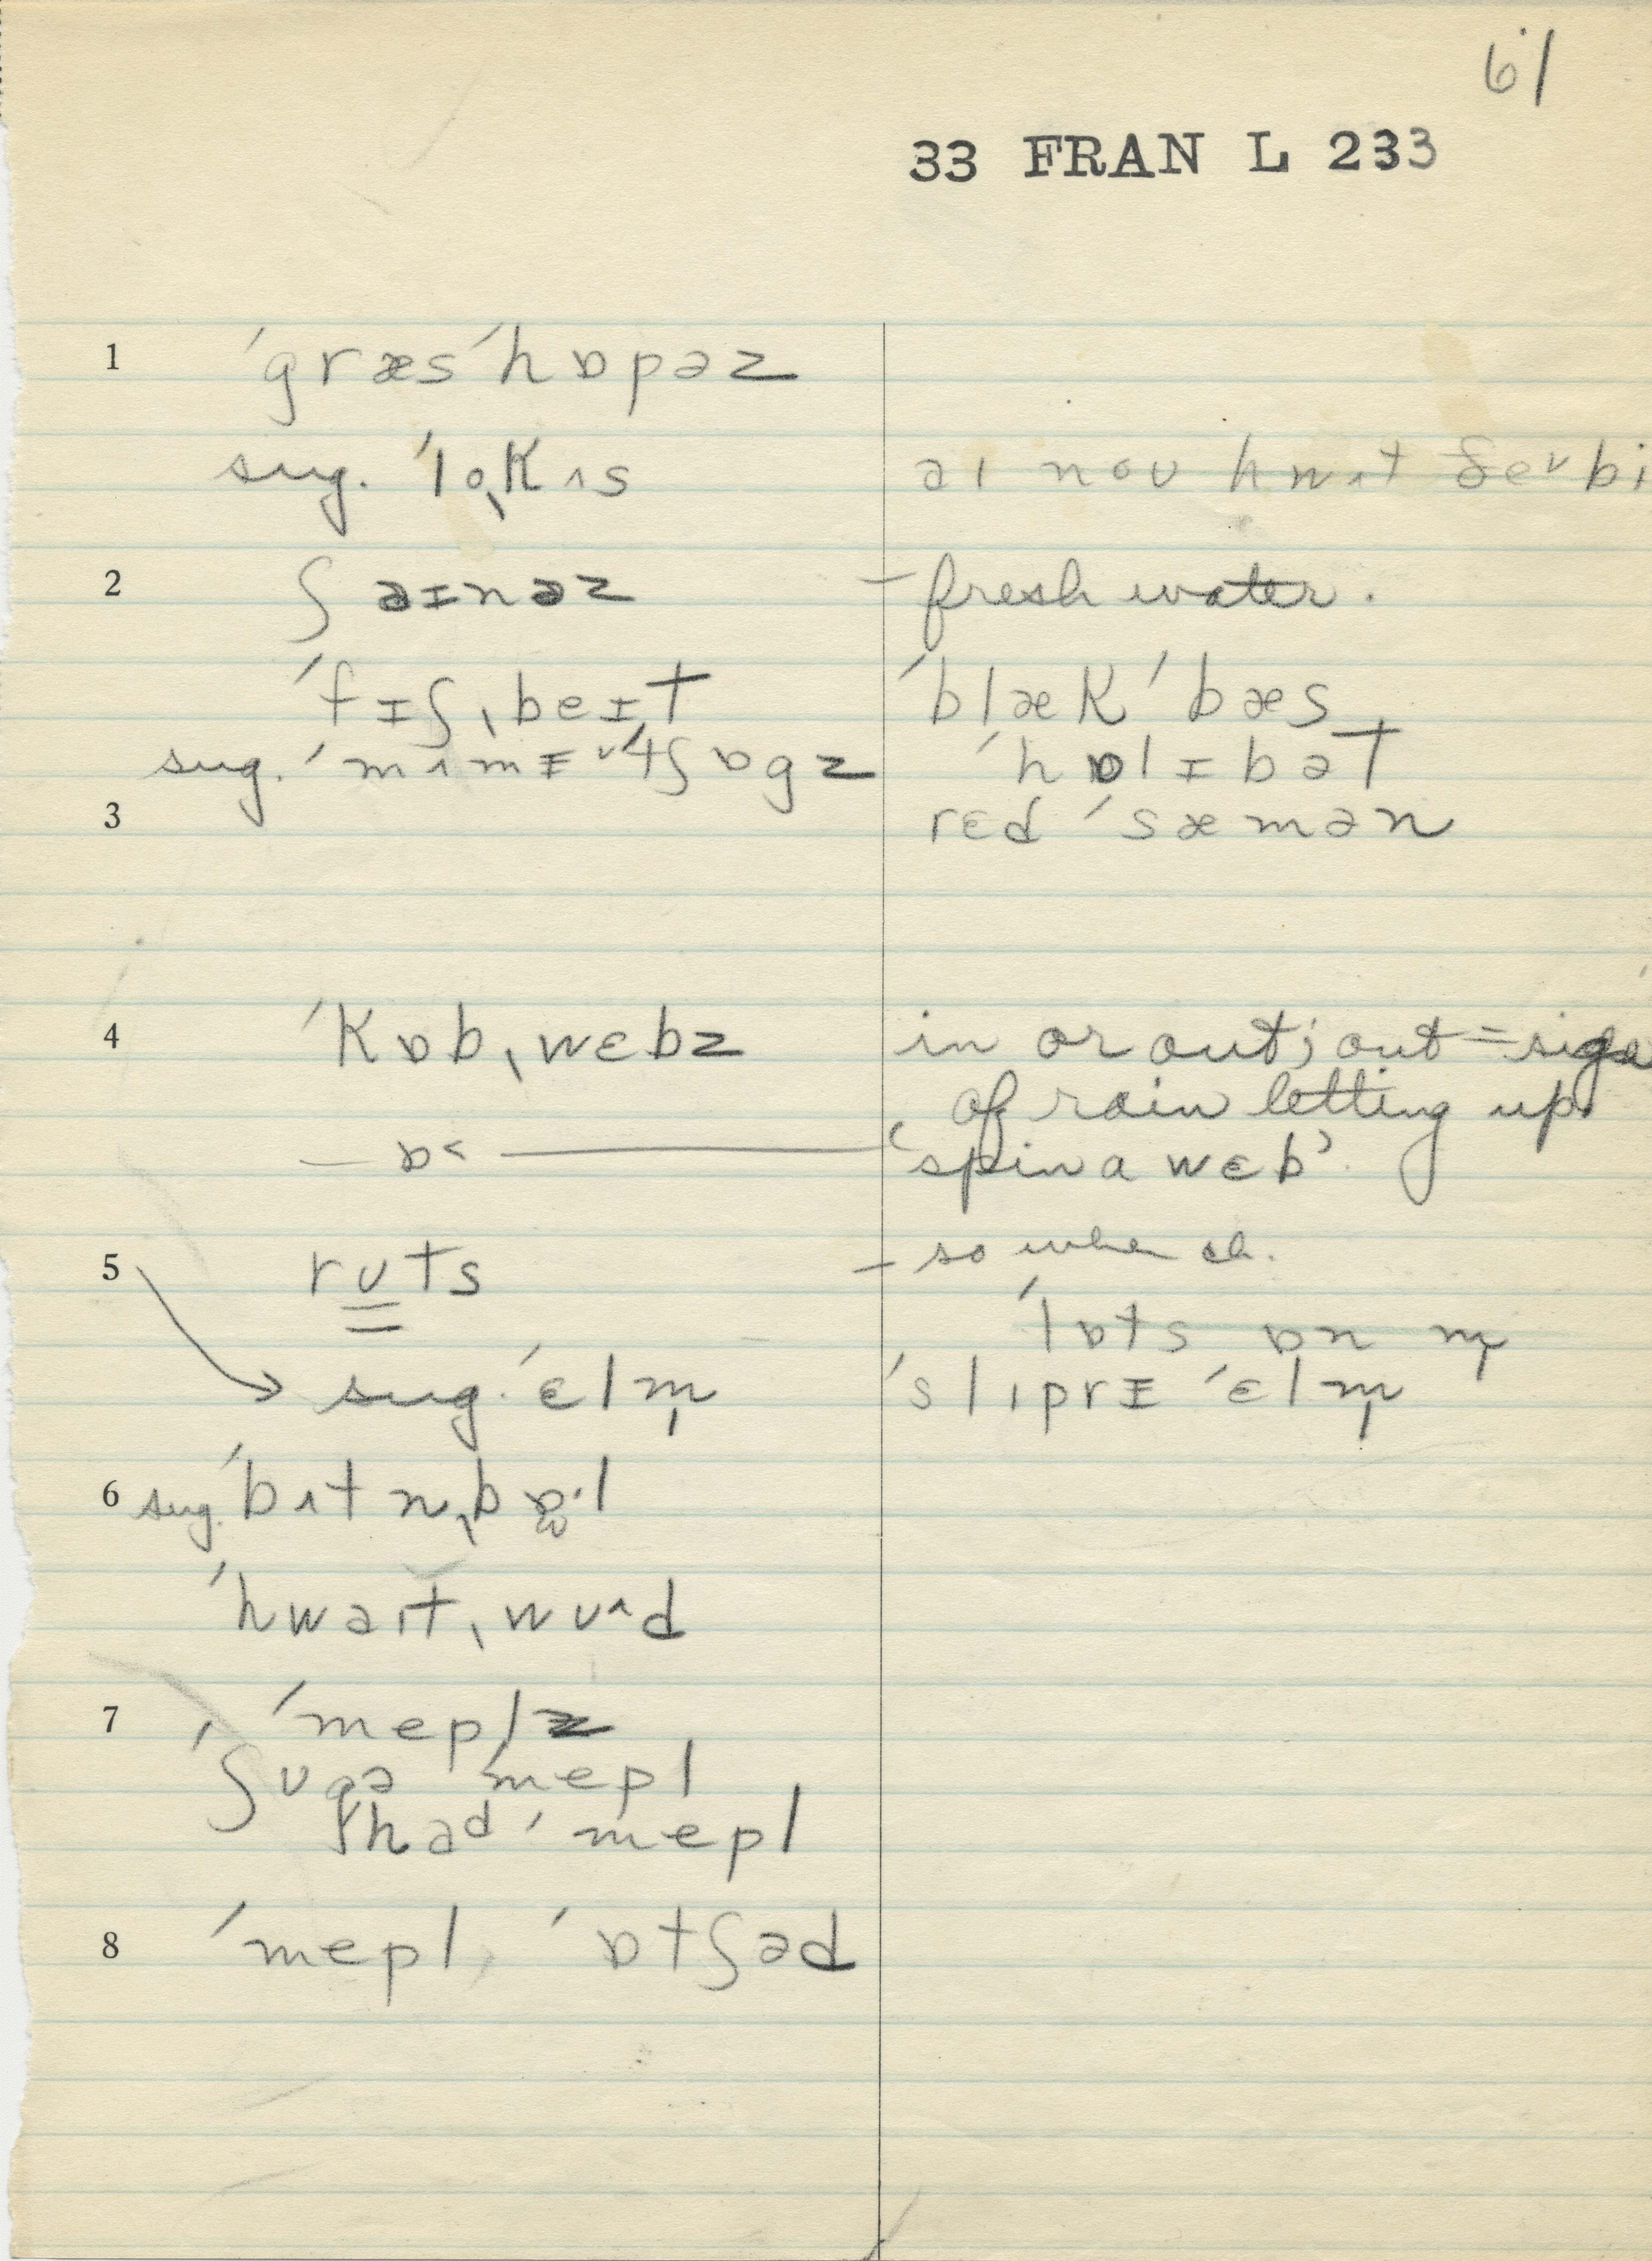 61
33 FRAN L 233
1 ˈgræsˈhɒpəz
sug. ˈloˌkʌs əɪ noʊ hwʌt ðeᵛ bi
2 ʃəɪnəz – fresh water.
ˈfɪʃˌbeɪt ˈblækˈbæs
sug. ˈmʌmɪ ˈhɒlɪbət
3 rɛd ˈsæmən
4 ˈkɒbˌwɛbz in or out; out = sign
of rain letting up.
— ɒ< — ‘spin a wɛb’.
5 rʊts – so when ch.
ˈlɒts ɒn m̩
sug. ˈɛlm̩ ˈslɪprɪ ˈɛlm̩
6 sug. ˈbʌtnˌbɒ·l
ˈhwaɪtˌwʊ^d
7 ˈmeplz
ˈʃʊgə ˈmepl
had ˈmepl
8 ˈmepl, ˈɒtʃəd